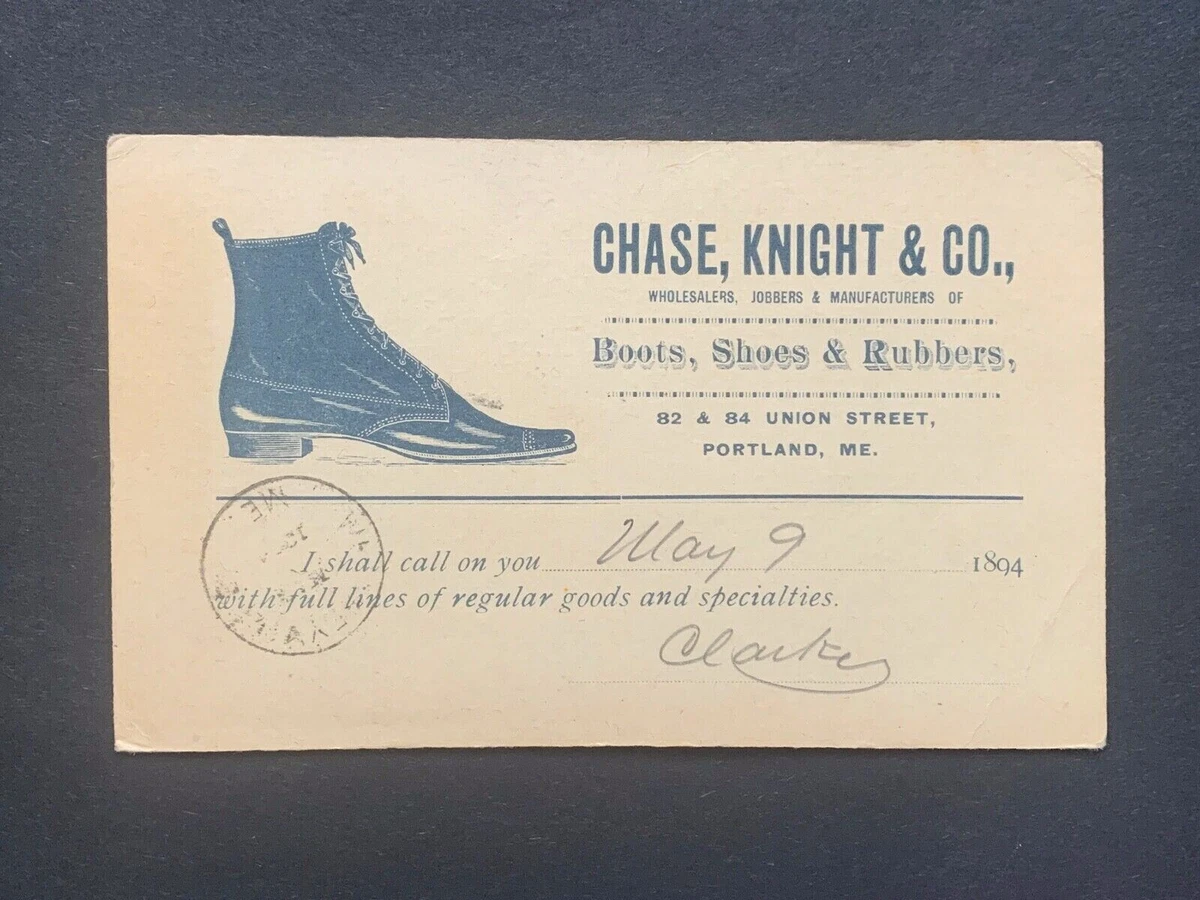 CHASE, KNIGHT & CO.,
WHOLESALERS, JOBBERS & MANUFACTURERS OF
Boots, Shoes & Rubbers,
82 & 84 UNION STREET,
PORTLAND, ME.
I shall call on you May 9 1894
with full lines of regular goods and specialties.
Clarke
ME